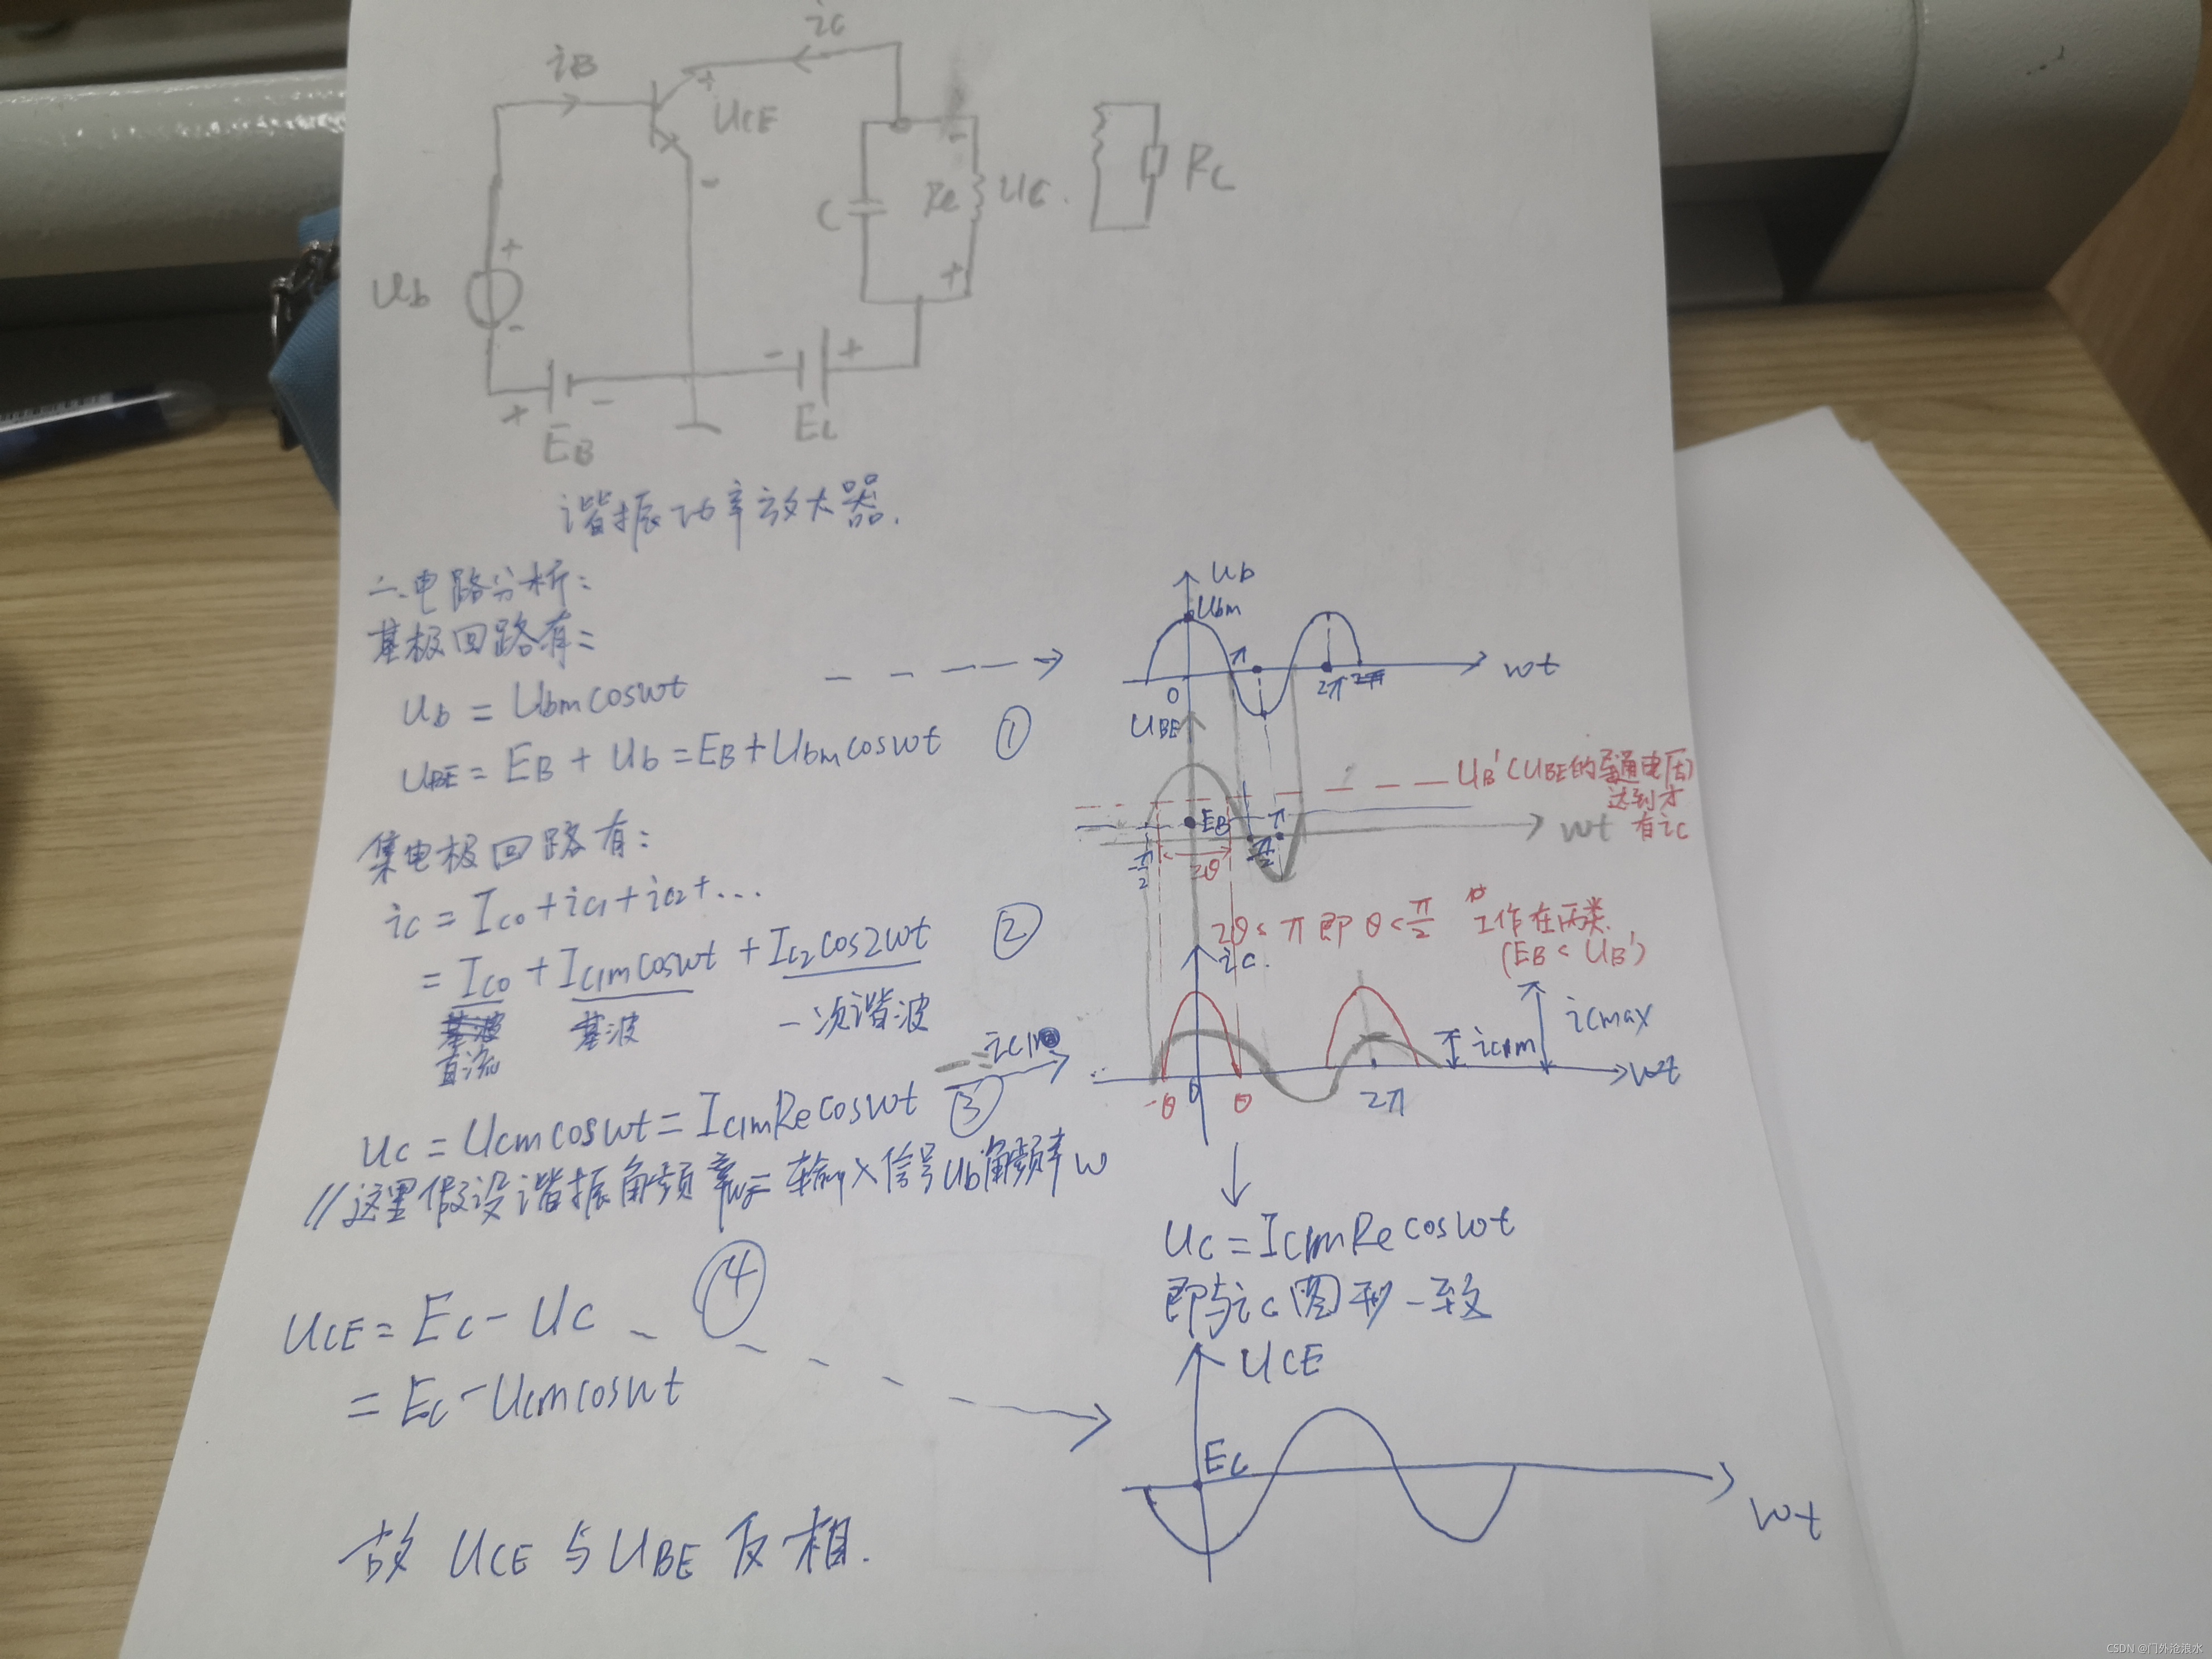 iB
ic
+
UCE
-
C
Re
UC
-
+
RL
Ub
+
-
+ -
EB
- +
EC
谐振功率放大器.
二.电路分析:
基极回路有:
Ub = Ubmcoswt
UBE = EB + Ub = EB + Ubmcoswt ①
集电极回路有:
ic = Ico + ic1 + ic2 + ...
= Ico + Ic1mcoswt + Ic2cos2wt ②
直流 基波 一次谐波
Uc = Ucmcoswt = Ic1mRecoswt ③
//这里假设谐振角频率w=输入信号Ub角频率w
UCE = Ec - Uc ④
= Ec - Ucmcoswt
故 UCE 与 UBE 反相.
Ub
Ubm
π
0
2π
wt
UBE
UB'(UBE的导通电压)
达到才
有ic
EB
π
wt
-π/2
2θ
π/2
2θ < π 即 θ < π/2 工作在丙类.
(EB < UB')
ic
ic1m
icmax
-θ 0 θ
2π
wt
Uc = Ic1mRecoswt
即与ic图形一致
UCE
Ec
wt
CSDN @门外沧浪水